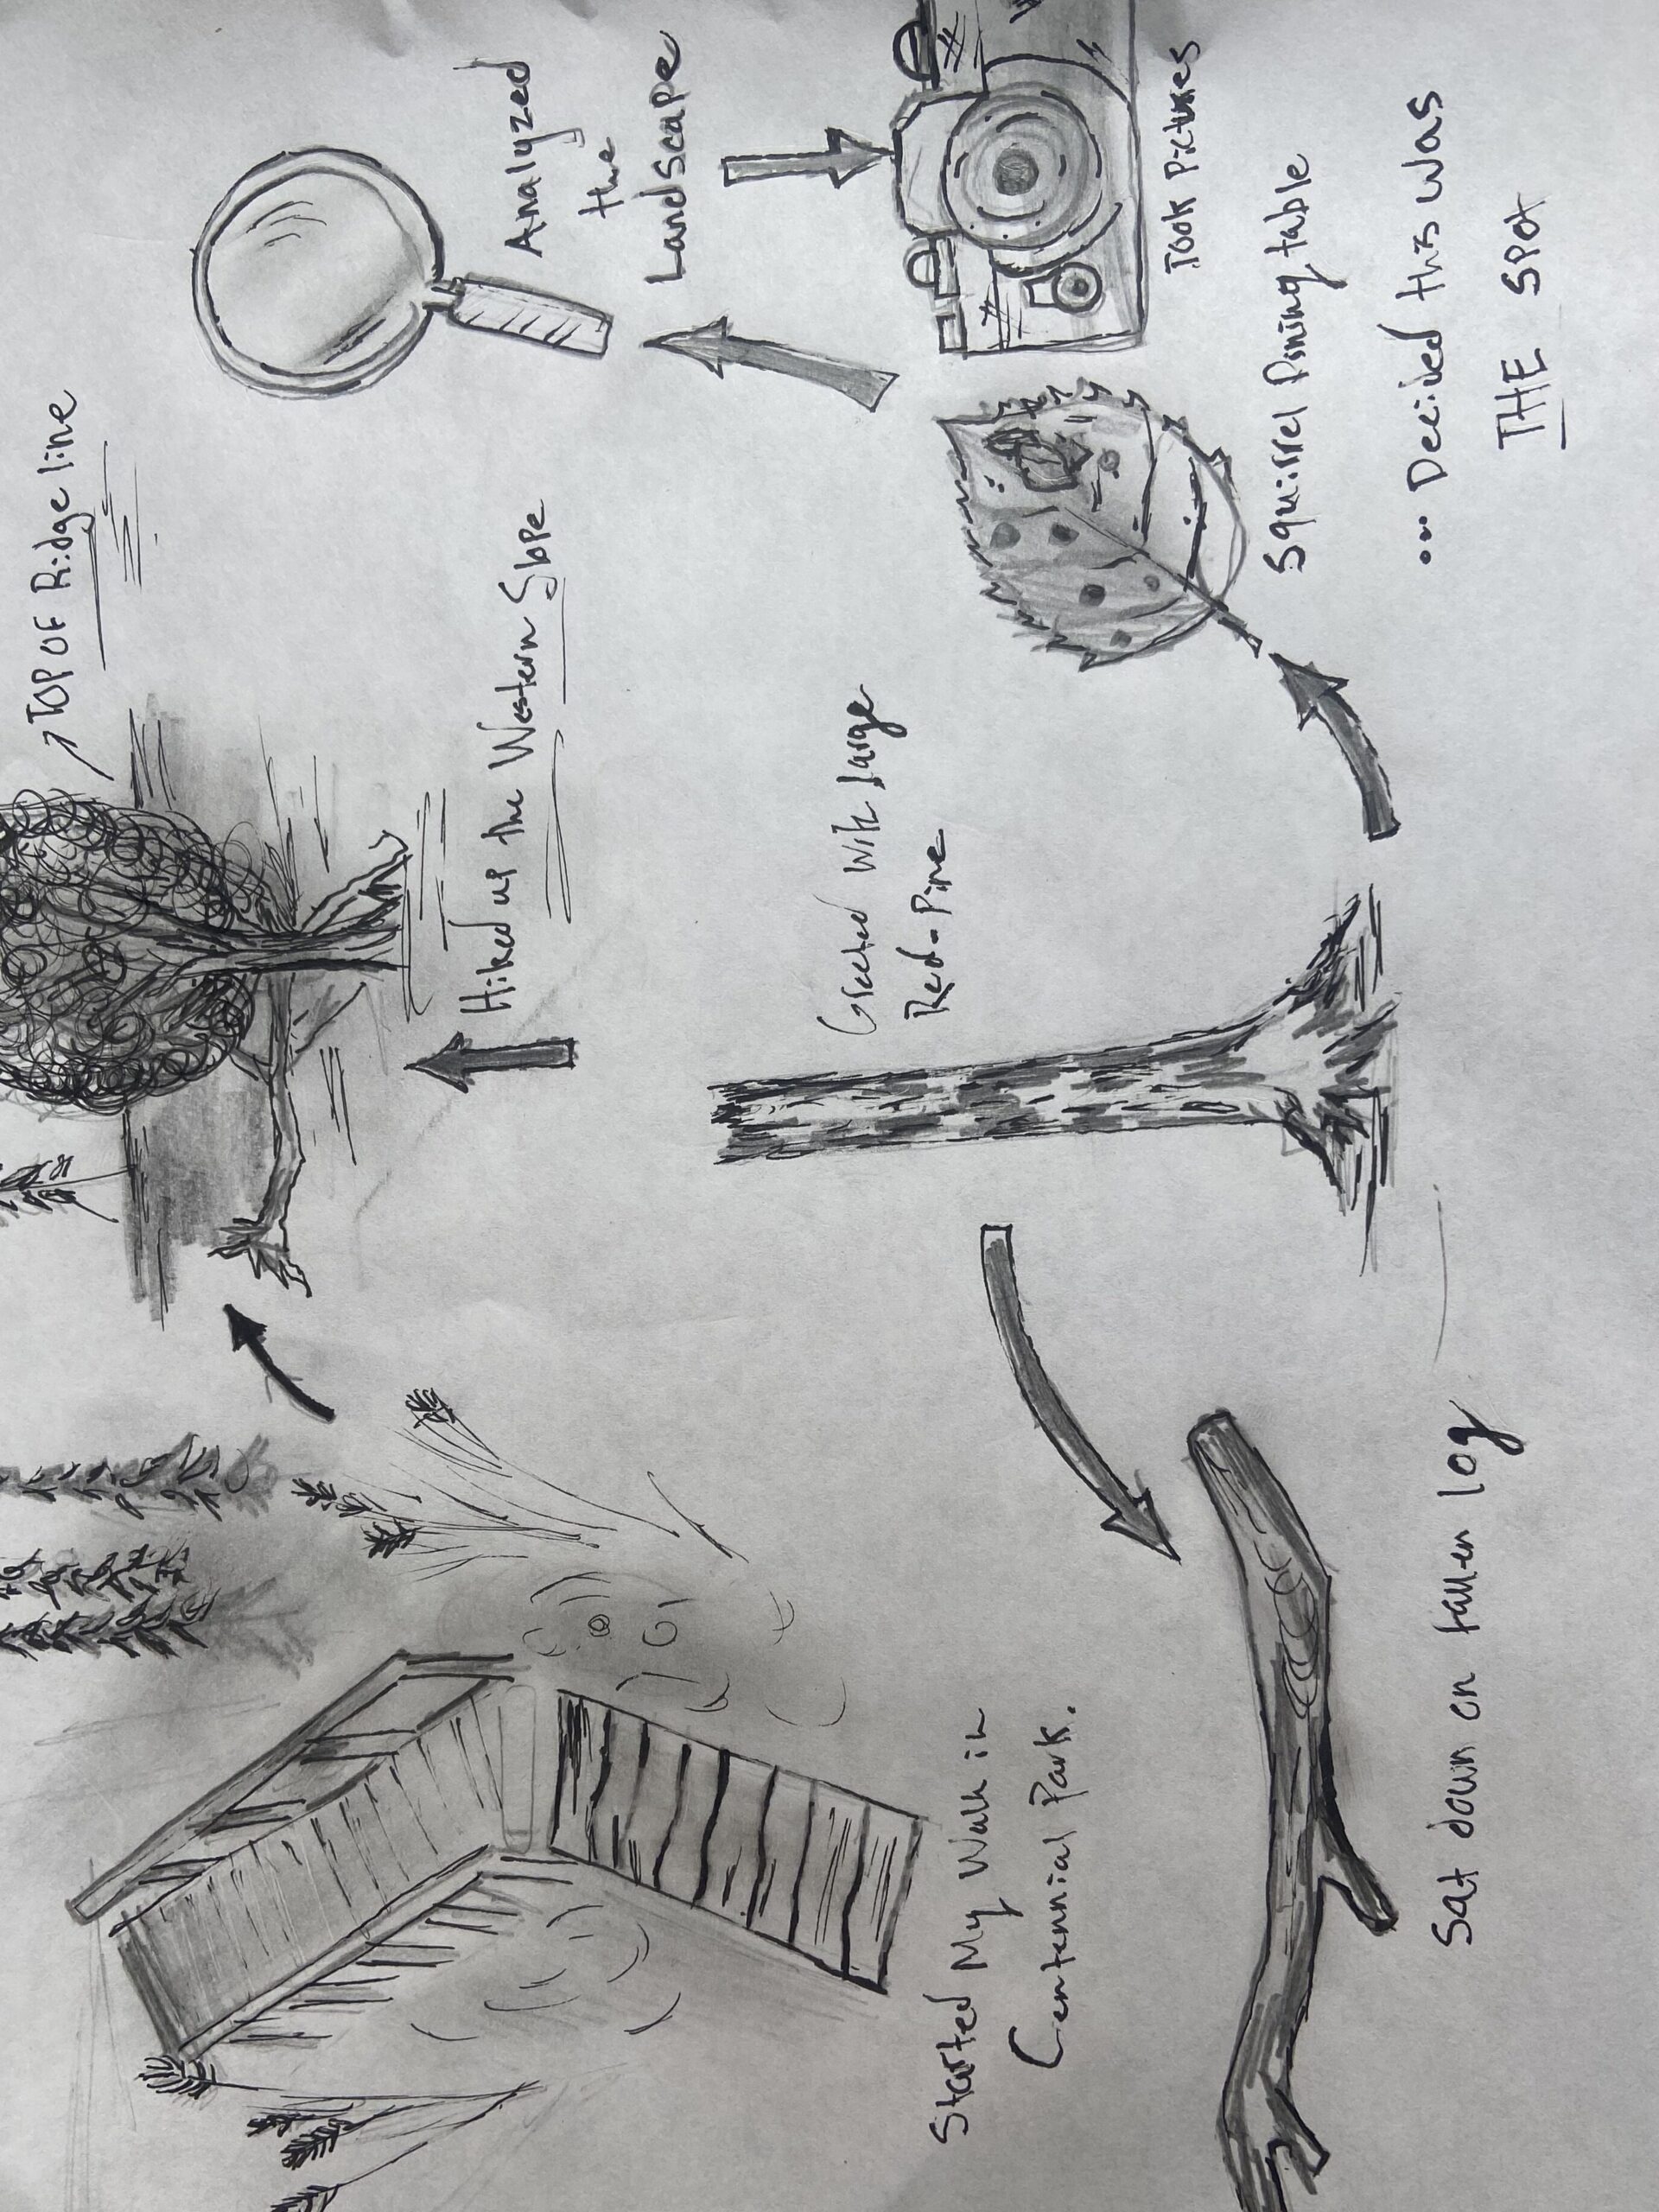 TOP OF Ridge line
Hiked up the Western Slope
Analyzed
the
Landscape
Started My Walk in
Centennial Park.
Greeted With large
Red-Pine
Took Pictures
Squirrel Dining table
Sat down on fallen log
... Decided this was
THE SPOT